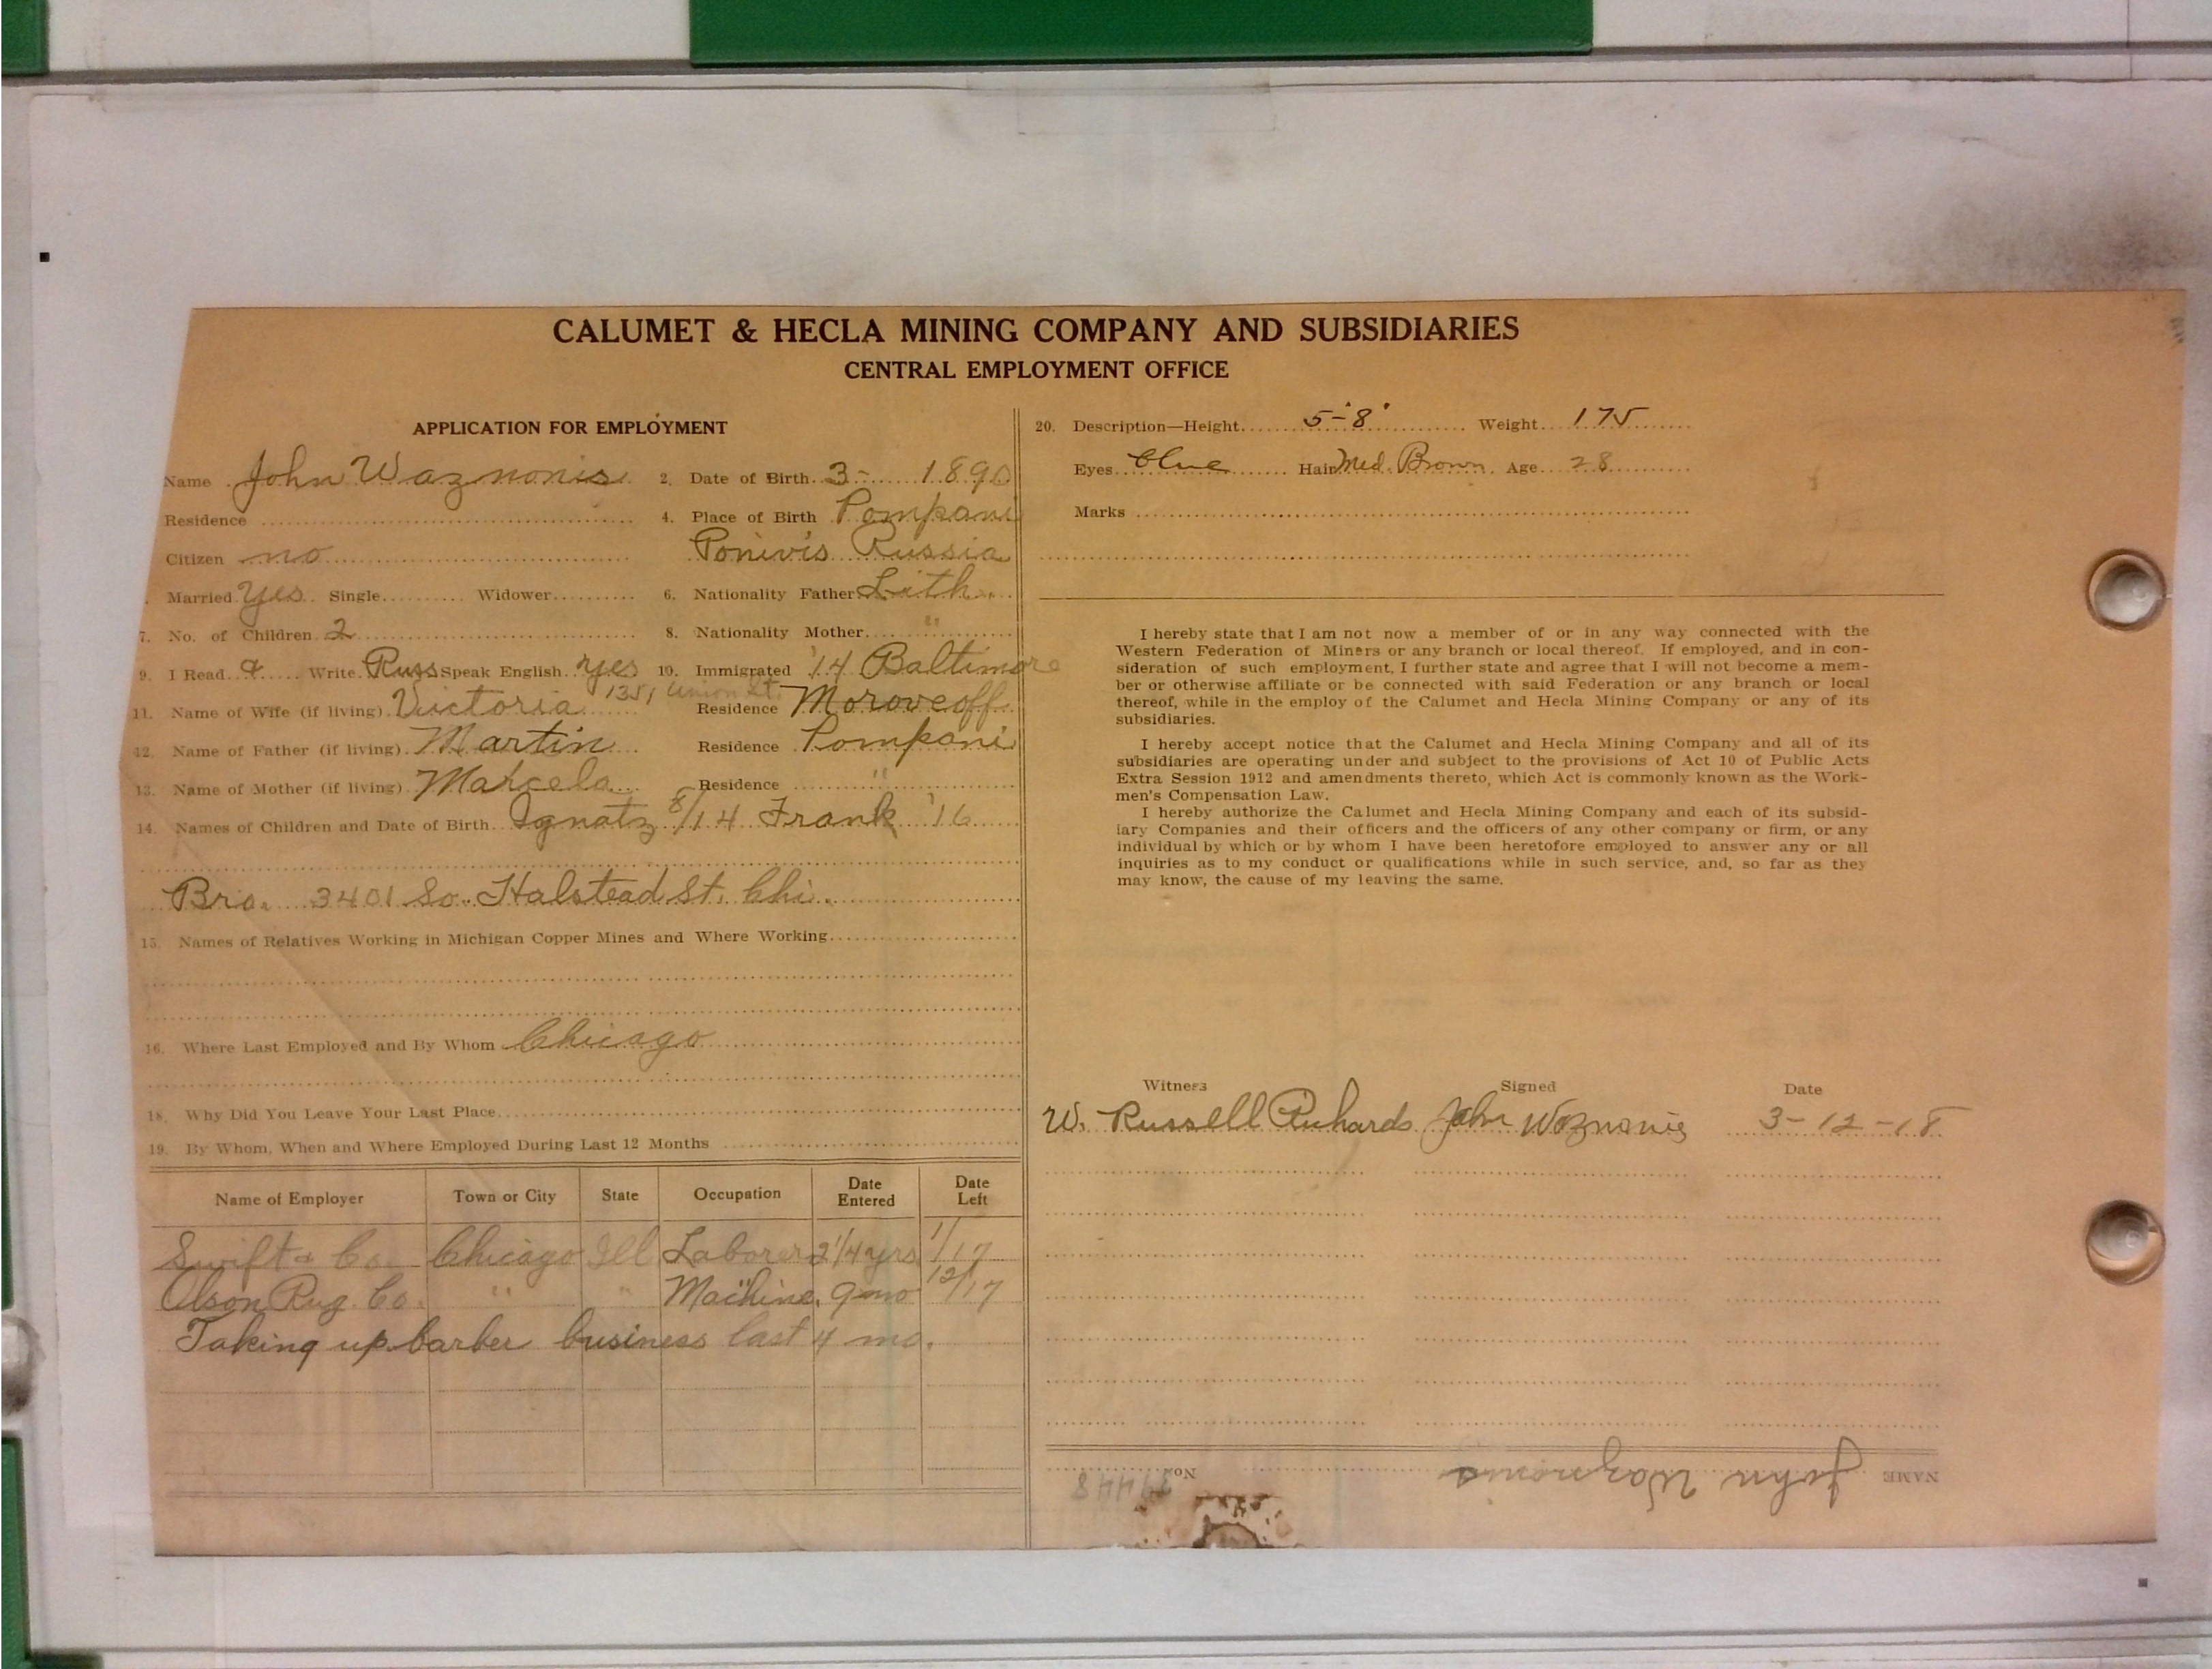 CALUMET & HECLA MINING COMPANY AND SUBSIDIARIES
CENTRAL EMPLOYMENT OFFICE
APPLICATION FOR EMPLOYMENT
Name John Waznonis 2. Date of Birth 3- 1890
Residence 4. Place of Birth Pompani
Citizen no Ponivis Russia
Married yes Single Widower 6. Nationality Father Lith.
7. No. of Children 2 8. Nationality Mother "
9. I Read & Write Russ Speak English yes 10. Immigrated '14 Baltimore
1351 Union St.
11. Name of Wife (if living) Victoria Residence Moroveoff
12. Name of Father (if living) Martin Residence Pompani
13. Name of Mother (if living) Marcela Residence "
14. Names of Children and Date of Birth Ignatz 8/14 Frank '16
Bro. 3401 So. Halstead St. Chi.
15. Names of Relatives Working in Michigan Copper Mines and Where Working
16. Where Last Employed and By Whom Chicago
18. Why Did You Leave Your Last Place
19. By Whom, When and Where Employed During Last 12 Months
Name of Employer Town or City State Occupation Date Entered Date Left
Swift & Co. Chicago Ill Laborer 2 1/4 yrs 1/17
Olson Rug Co. " " Machine. 9 mo 12/17
Taking up barber business last 4 mo.
20. Description—Height 5'-8" Weight 175
Eyes blue Hair Med. Brown Age 28
Marks
I hereby state that I am not now a member of or in any way connected with the
Western Federation of Miners or any branch or local thereof. If employed, and in con-
sideration of such employment, I further state and agree that I will not become a mem-
ber or otherwise affiliate or be connected with said Federation or any branch or local
thereof, while in the employ of the Calumet and Hecla Mining Company or any of its
subsidiaries.
I hereby accept notice that the Calumet and Hecla Mining Company and all of its
subsidiaries are operating under and subject to the provisions of Act 10 of Public Acts
Extra Session 1912 and amendments thereto, which Act is commonly known as the Work-
men's Compensation Law.
I hereby authorize the Calumet and Hecla Mining Company and each of its subsid-
iary Companies and their officers and the officers of any other company or firm, or any
individual by which or by whom I have been heretofore employed to answer any or all
inquiries as to my conduct or qualifications while in such service, and, so far as they
may know, the cause of my leaving the same.
Witness Signed Date
W. Russell Richards John Woznonis 3-12-18
NAME John Waznonis No.